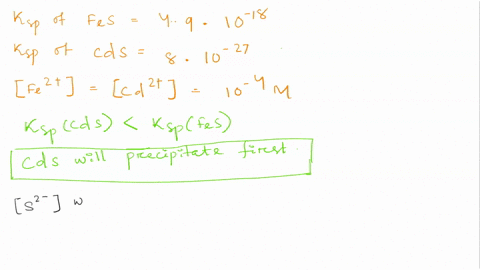 Ksp of FeS = 4.9 . 10^-18
Ksp of CdS = 8 . 10^-27
[Fe^2+] = [Cd^2+] = 10^-4 M
Ksp(CdS) < Ksp(FeS)
CdS will precipitate first.
[S^2-] w